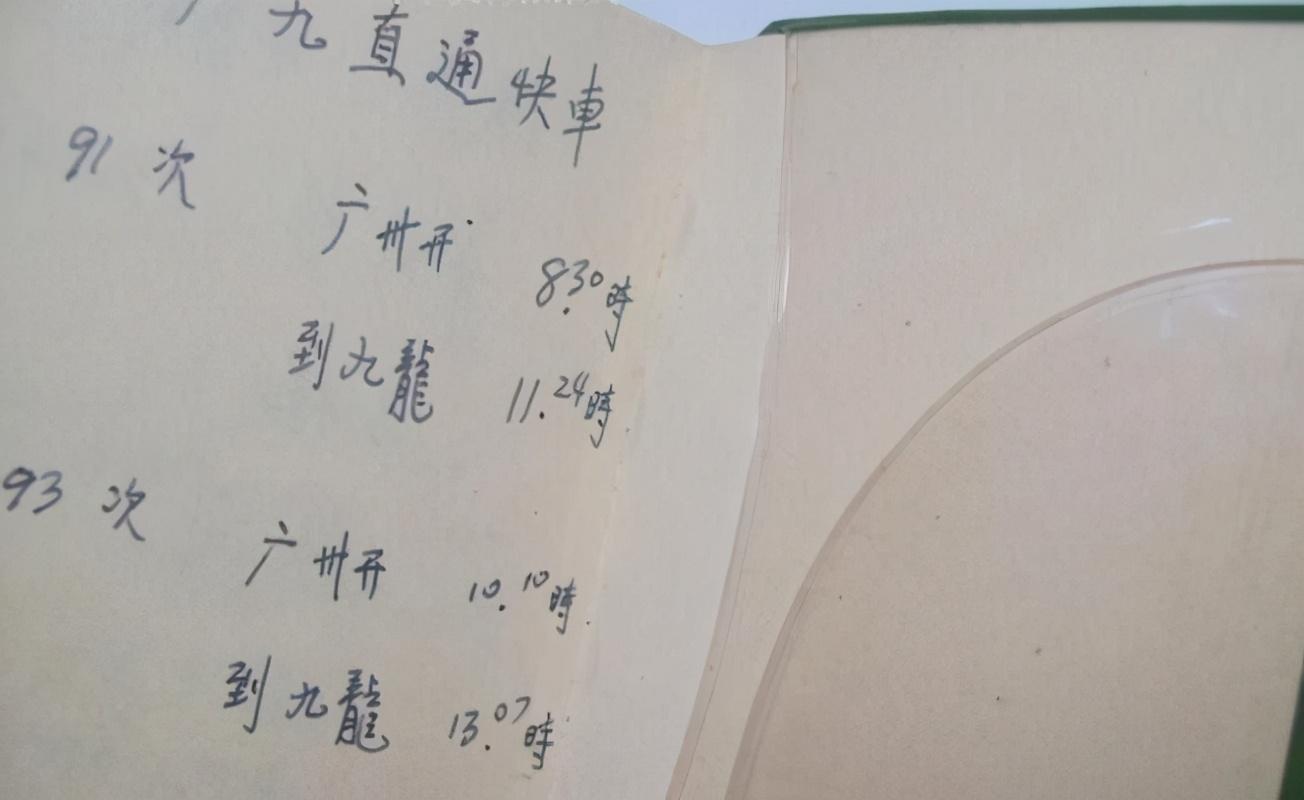 广九直通快車
91次
广州开 8.30時
到九龍 11.24時
93次
广州开 10.10時
到九龍 13.07時